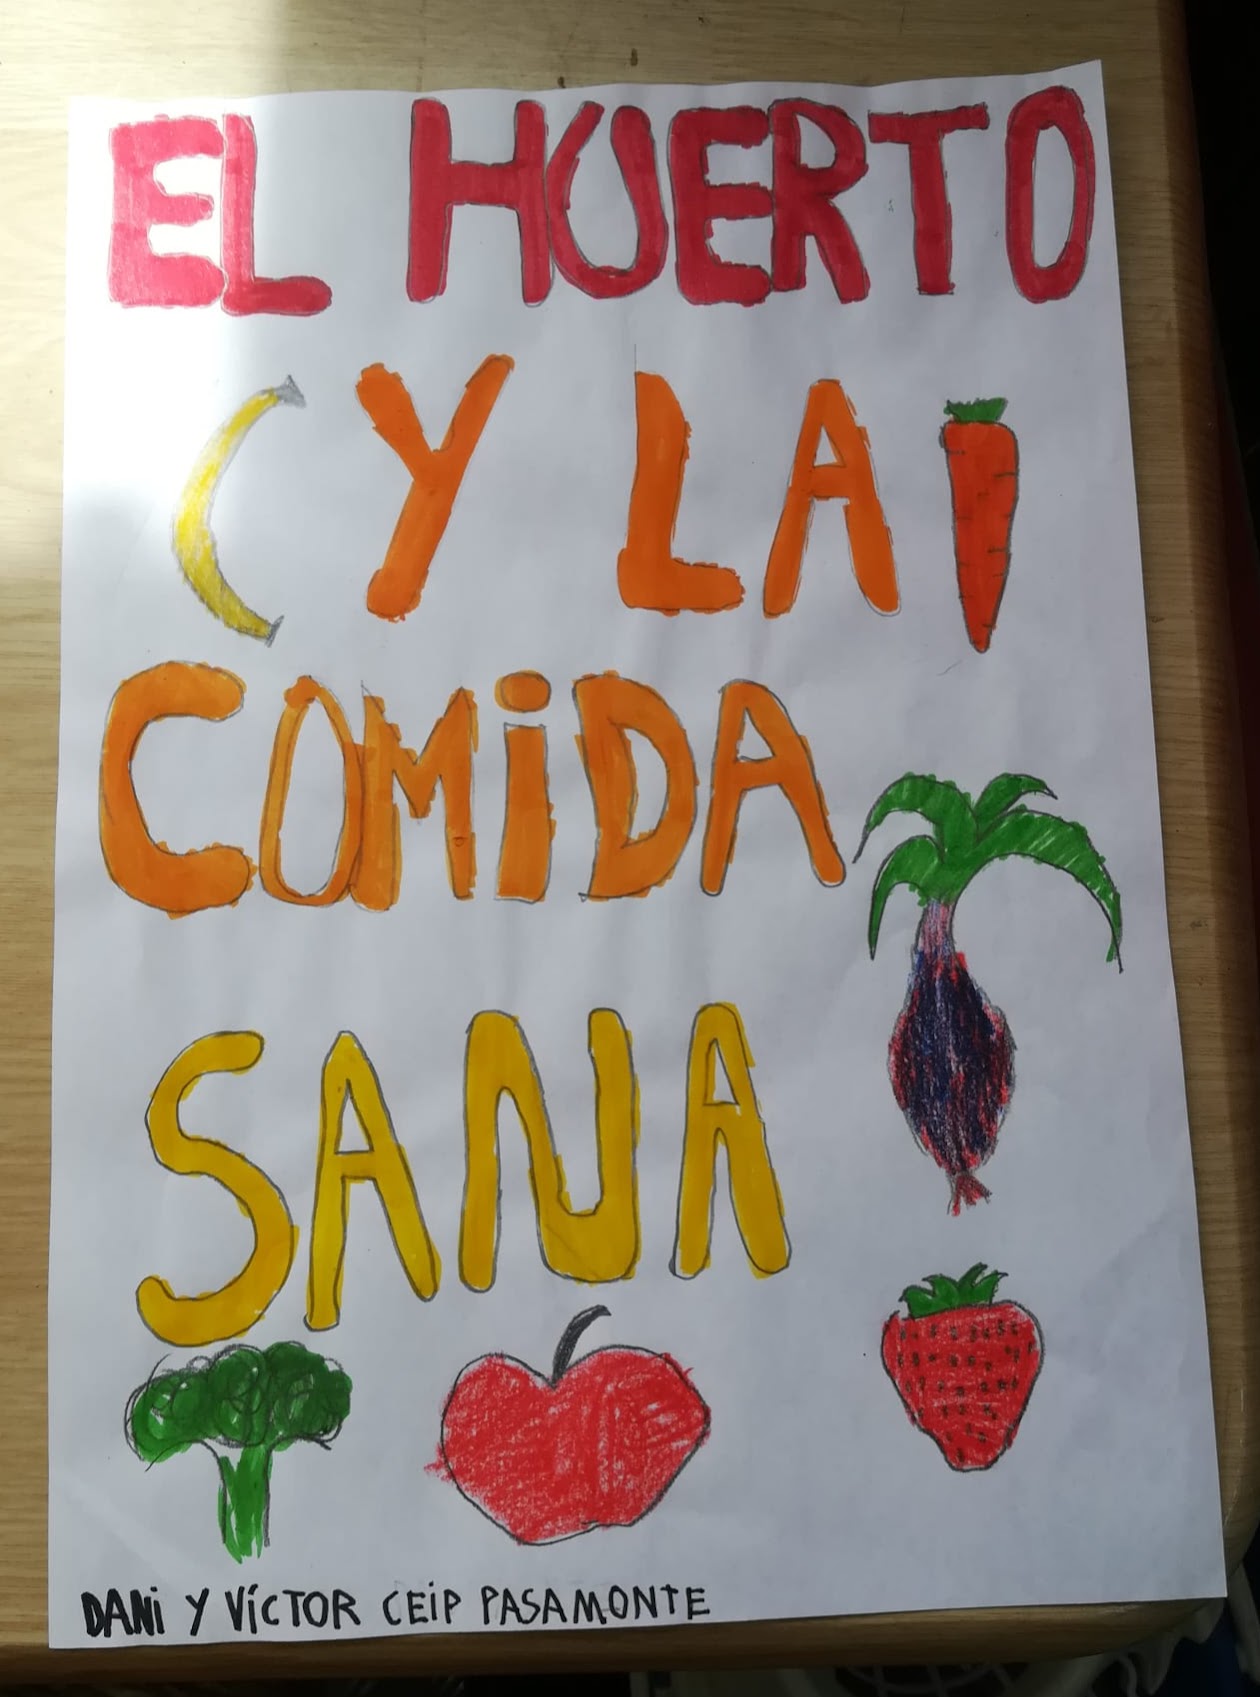 EL HUERTO
Y LA
COMiDA
SANA
DANi Y VíCTOR CEiP PASAMONTE